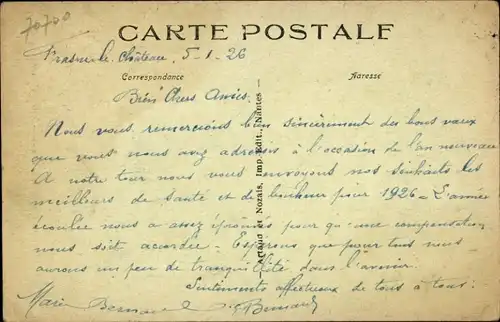 70700
CARTE POSTALE
Château, 5-1-26
Correspondance
Adresse
Bien Chers Amis.
Nous vous remercions bien sincèrement des bons vœux
que vous nous avez adressés à l'occasion de l'an nouveau
A notre tour nous vous envoyons nos souhaits les
meilleurs de santé et de bonheur pour 1926 - L'année
écoulée nous a assez éprouvés pour qu'une compensation
nous soit accordée - Espérons que pour tous nous
aurons un peu de tranquillité dans l'avenir.
Sentiments affectueux de tous à tous.
Marie Bernard Bernard
Artaud et Nozais, Imp. Edit., Nantes -